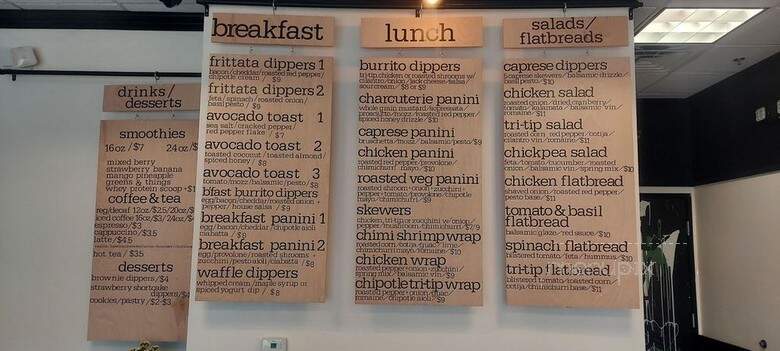 drinks/
desserts
smoothies
16oz/$7 24oz/$
mixed berry
strawberry banana
mango pineapple
greens & things
whey protein scoop
coffee & tea
reg/decaf 12oz/$2.5/20oz/
iced coffee 16oz/$3/24oz/
espresso/$3
cappuccino/$3.5
latte/$4.5
hot tea/$3.5
desserts
brownie dippers/$4
strawberry shortcake
dippers/$4
cookies/pastry/$2-$3
breakfast
frittata dippers 1
bacon/cheddar/roasted red pepper/
chipotle cream / $9
frittata dippers 2
feta/spinach/roasted onion/
basil pesto / $9
avocado toast 1
sea salt/cracked pepper/
red pepper flake / $7
avocado toast 2
toasted coconut/toasted almond/
spiced honey / $8
avocado toast 3
tomato/mozz/balsamic/pesto/$8
bfast burrito dippers
egg/bacon/cheddar/roasted onion +
pepper / house salsa / $9
breakfast panini 1
egg/bacon/cheddar/chipotle aioli
ciabatta / $8
breakfast panini 2
egg/provolone/roasted shrooms +
zucchini/pesto aioli/ciabatta / $8
waffle dippers
whipped cream/maple syrup or
spiced yogurt dip / $8
lunch
burrito dippers
tri-tip chicken or roasted shrooms w/
cilantro/onion/jack cheese/salsa/
sour cream/$8 or $9
charcuterie panini
whole grain mustard/sopressata/
prosciutto/mozz/roasted red pepper/
spiced honey drizzle/$10
caprese panini
bruschetta/mozz/balsamic/pesto/$9
chicken panini
roasted red pepper/provolone/
chimichurri mayo/$10
roasted veg panini
roasted shroom+onion+zucchini+
pepper+tomato/provolone/chipotle
mayo/chimichurri/$9
skewers
chicken, tri-tip or zucchini w/onion/
pepper/mushroom/chimichurri/$2/9
chimi shrimp wrap
roasted corn/cotija/guac/lime/
romaine/$10
chicken wrap
roasted pepper+onion+zucchini/
spring mix/balsamic vin/$9
chipotle tri-tip wrap
roasted pepper+onion/guac/
romaine/chipotle aioli/$9
salads/
flatbreads
caprese dippers
caprese skewers/balsamic drizzle/
basil pesto/$10
chicken salad
roasted onion/dried cranberry/
tomato/kalamata/balsamic vin/
romaine/$11
tri-tip salad
roasted corn+red pepper/cotija/
cilantro vin/romaine/$11
chickpea salad
feta/tomato/cucumber/roasted
onion/balsamic vin/spring mix/$10
chicken flatbread
shaved onion/roasted red pepper/
pesto base/$11
tomato & basil
flatbread
balsamic glaze/red sauce/$10
spinach flatbread
blistered tomato/feta/hummus/$10
tri-tip flatbread
blistered tomato/roasted corn/
cotija/chimichurri base/$11